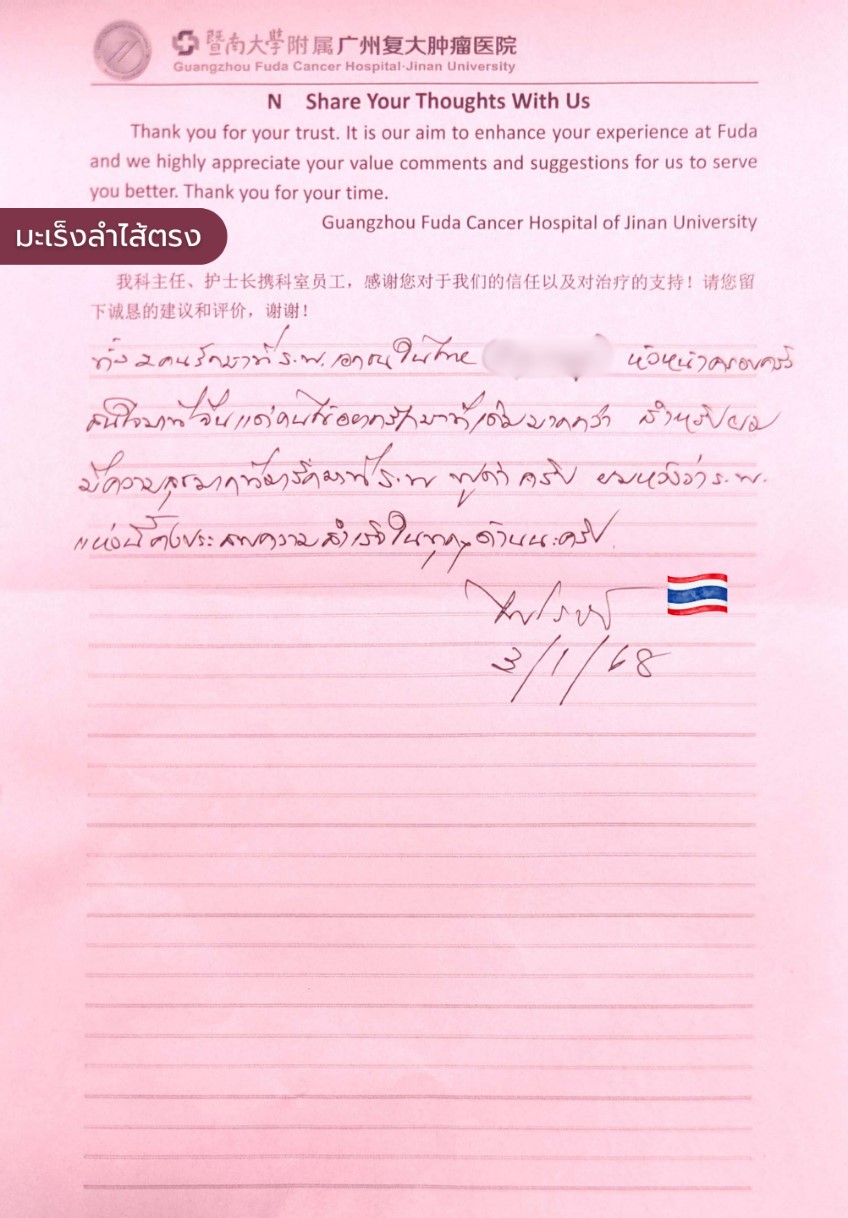 暨南大學附属广州复大肿瘤医院
Guangzhou Fuda Cancer Hospital·Jinan University
N Share Your Thoughts With Us
Thank you for your trust. It is our aim to enhance your experience at Fuda
and we highly appreciate your value comments and suggestions for us to serve
you better. Thank you for your time.
Guangzhou Fuda Cancer Hospital of Jinan University
มะเร็งลำไส้ตรง
我科主任、护士长携科室员工，感谢您对于我们的信任以及对治疗的支持！请您留
下诚恳的建议和评价，谢谢！
ทั้ง 2 คนรักษาที่ ร.พ. เอกชนในไทย หัวหน้าครอบครัว
สนใจมาที่จีนแต่คนไข้อยากรักษาที่เดิมมากกว่า สำหรับผม
มีความสุขมากที่มารักษาที่ ร.พ ฟูด้า ครับ ผมหวังว่า ร.พ.
แห่งนี้คงประสบความสำเร็จในทุกๆด้านนะครับ.
3/1/68